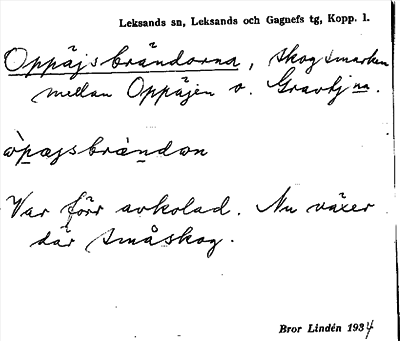 Leksands sn, Leksands och Gagnefs tg, Kopp. l.
Oppäjsbrändorna, skogsmarken
mellan Oppäjen o. Gravtj na.
òpæjsbræ̀ndon
Var förr avkolad. Nu växer
där småskog.
Bror Lindén 1934